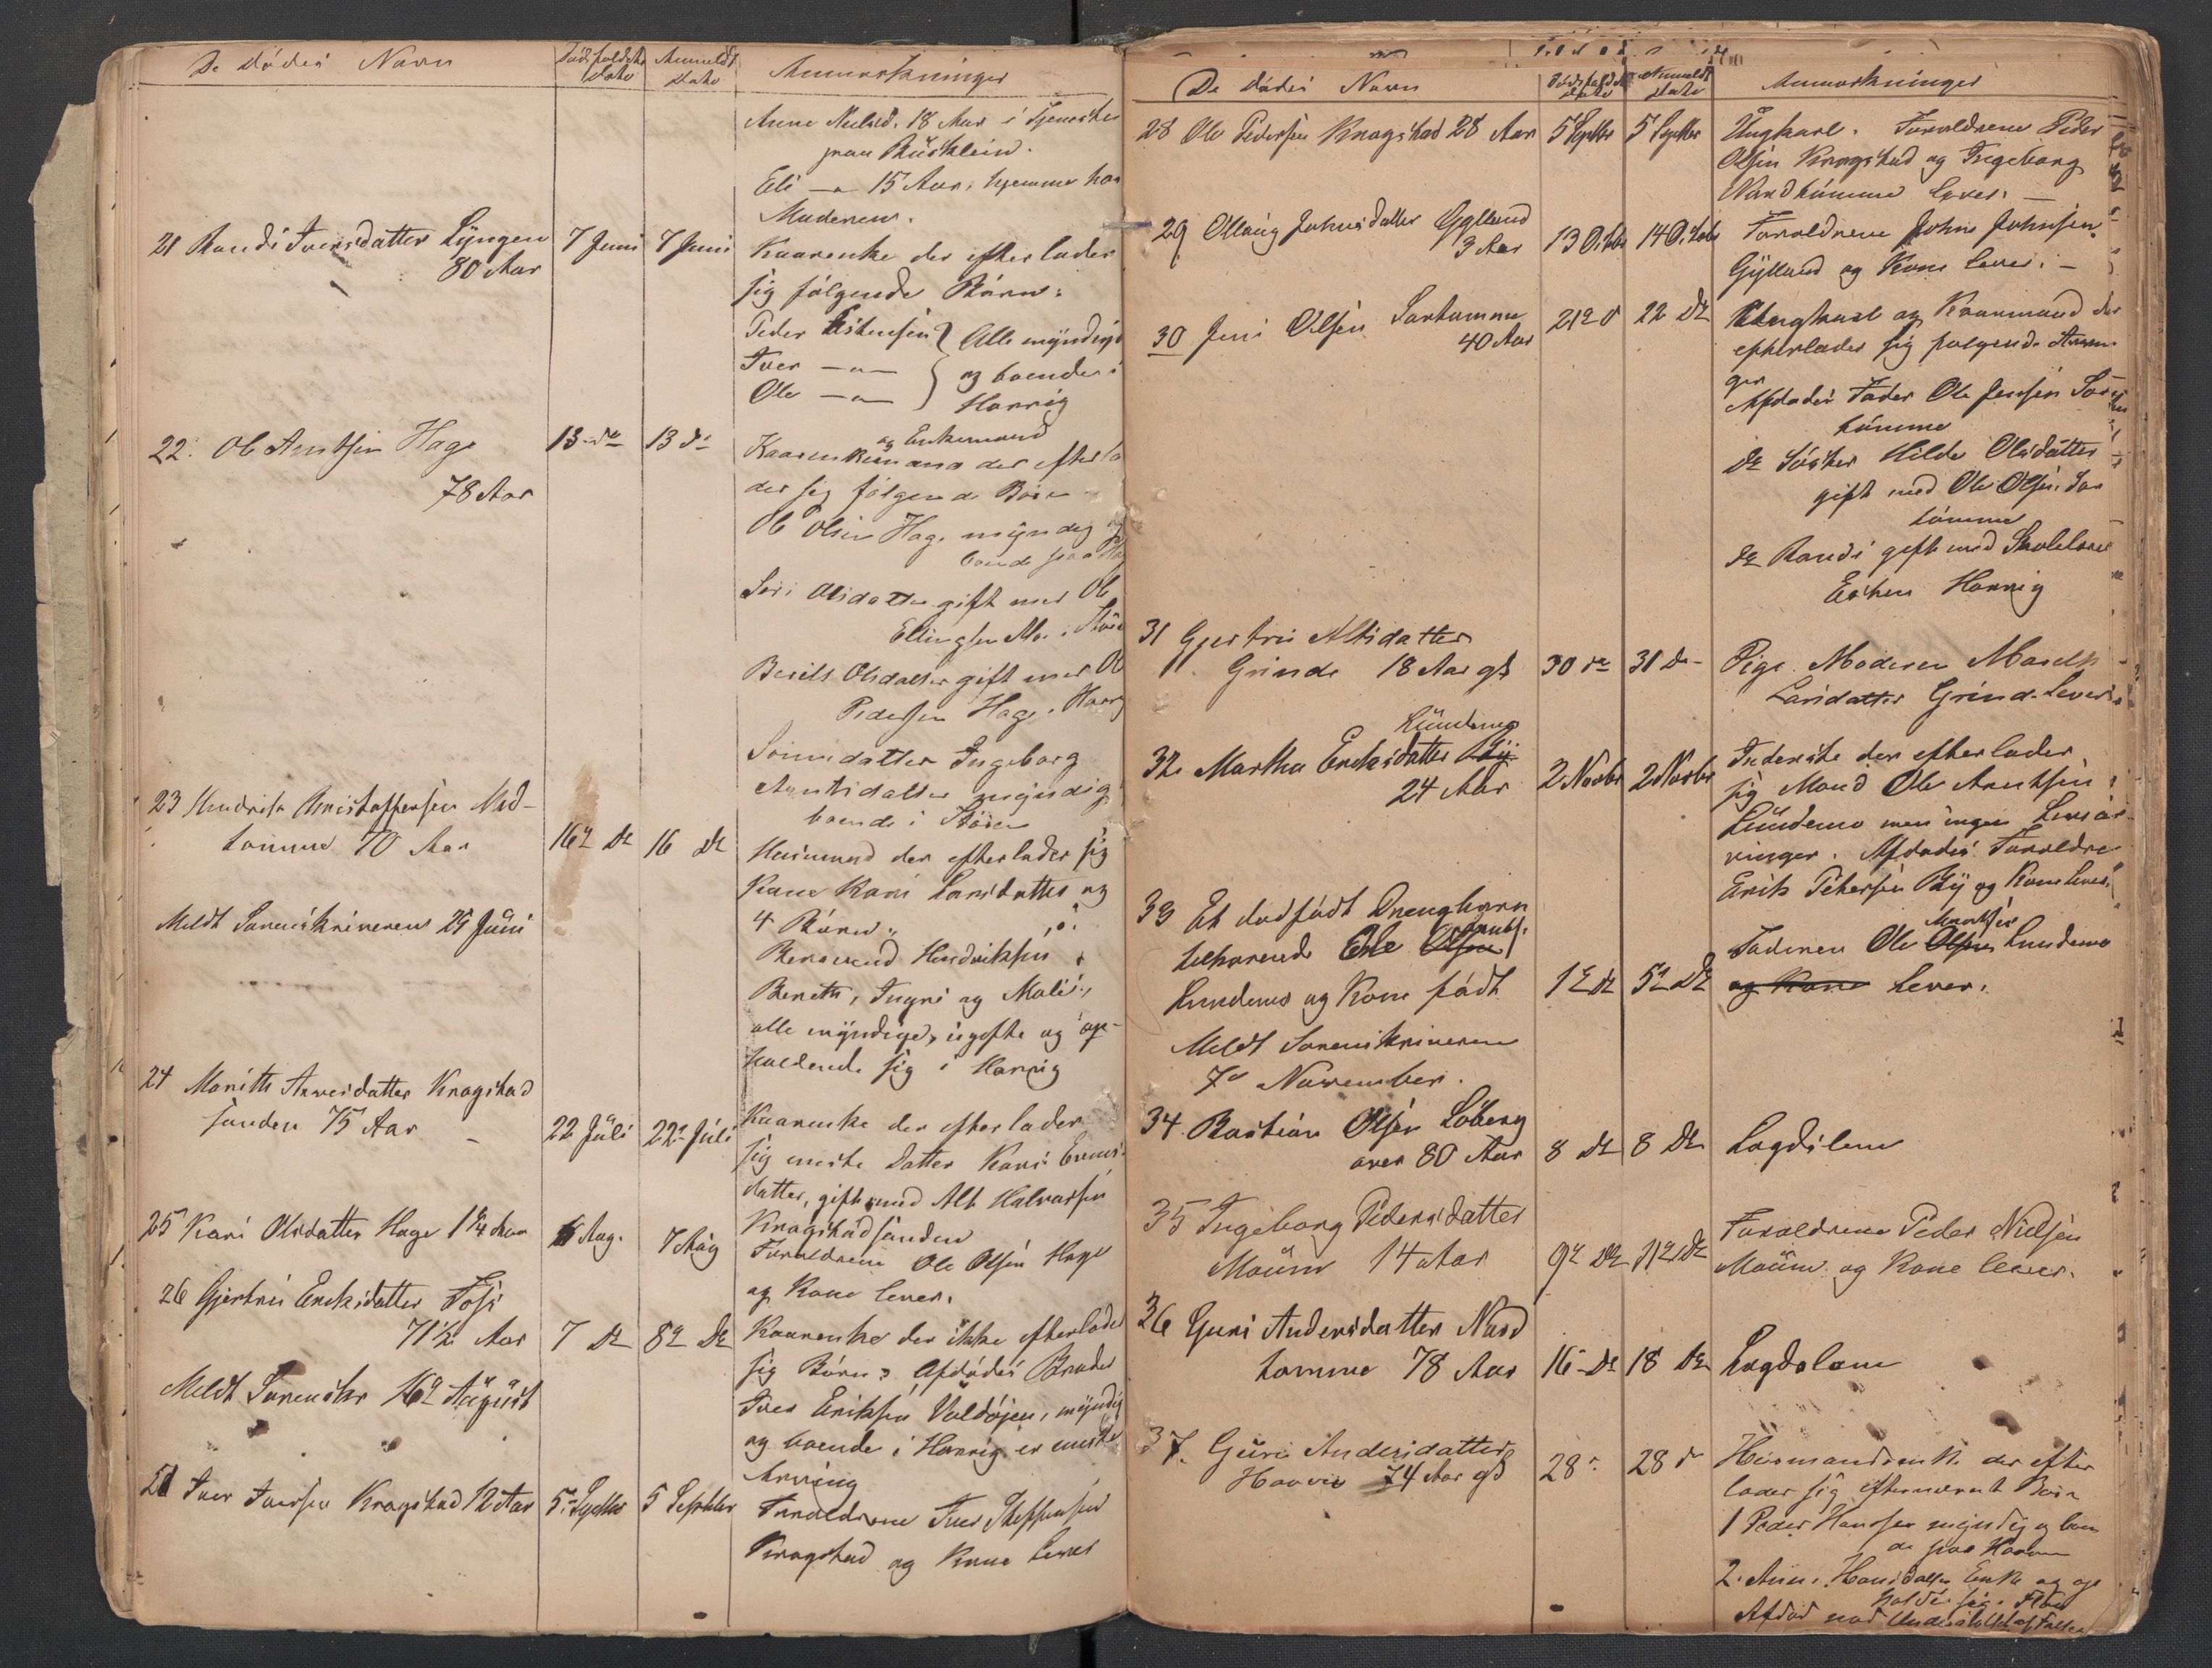 De Dødes Navn
Dødsfaldets Dato
Anmeldt Dato
Anmærkninger
Anne Nielsd. 18 Aar i Tjeneste
paa
Eli — 15 Aar, hjemme hos
Moderen.
21 Randi Iversdatter Lyngen
80 Aar
7 Juni 7 Juni
Kaarenke der efterlader
sig følgende Børn:
Peder Estensen } Alle myndige
Iver —"— } og boende i
Ole —"— } Horrig
22. Ole Arntsen Hage
78 Aar
13 do 13 do
og Enkemand
Kaarenkemand der efterla
der sig følgende Børn
Ole Olsen Hage myndig og
boende paa Hage
Siri Olsdatter gift med Ole
Ellingsen Mo i Støren
Berit Olsdatter gift med Ole
Pedersen Hage i Horrig
Sønnedatter Ingeborg
Arntsdatter myndig
boende i Støren
23 Hendrik Kristoffersen Ned-
tømme 70 Aar
16de do 16 do
Huusmand der efterlader sig
Kone Kari Larsdatter og
4 Børn,
Meldt Sorenskriveren 25 Juni
Hendriksen
Bereth, Ingri og Mali,
alle myndige, ugifte og op-
holdende sig i Horrig
24 Marith Arnesdatter Krogstad
sanden 75 Aar
22 Juli 22 Juli
Kaarenke der efterlader
sig eneste Datter Kari
datter, gift med Alt Halvorsen
Krogstadsanden
25 Kari Olsdatter Hage 1 1/4 Aar
6 Aug. 7 Aug
Forældrene Ole Olsen Hage
og Kone lever.
26 Gjertru Eriksdatter Fosse
71 1/2 Aar
7 do 8de do
Kaarenke der ikke efterlader
sig Børn; Afdødes Broder
Meldt Sorenskr 16de August
Iver Eriksen Voldøien, myndig
og boende i Horrig er eneste
Arving
27 Iver Iversen Krogstad 12 Aar
5 Septbr 5 Septbr
Forældrene Iver Steffensen
Krogstad og Kone lever
De Dødes Navn
Dødsfaldets Dato
Anmeldt Dato
Anmærkninger
28 Ole Pedersen Krogstad 28 Aar
5 Septbr 5 Septbr
Ungkarl. Forældrene Peder
Olsen Krogstad og Ingeborg
lever. —
29 Ollaug Johnsdatter Gylland
3 Aar
13 Octbr 14 Octob
Forældrene John Johnsen
Gylland og Kone lever. —
30 Jens Olsen Sørtømme
40 Aar
21de do 22 do
Ungkarl og Kaarmand der
efterlader sig følgende Arvin-
ger
Afdødes Fader Ole Jensen Sør
tømme
do Søster Hilde Olsdatter
gift med Ole Olsen Sør
tømme
do Randi gift med Skolelærer
Esten Horrig
31 Gjertru Altsdatter
Grinde 18 Aar gl
30 do 31 do
Pige. Moderen Mareth
Larsdatter Grinde lever
32 Martha Eriksdatter By
Lundemo
24 Aar
2 Novbr 2 Novbr
Inderste der efterlader
sig Mand Ole Arntsen
Lundemo men ingen Livsar-
vinger. Afdødes Forældre
Erik Petersen By og Kone lever.
33 Et dødfødt Drengebarn
Arnts.
tilhørende Ole Olsen
Lundemo og Kone født
1de do 5te do
Arntsen
Faderen Ole Olsen Lundemo
og Kone lever.
Meldt Sorenskriveren
7de November.
34. Bastian Olsen Løberg
over 80 Aar
8 do 8 do
Lægdslem
35 Ingeborg Pedersdatter
Moum 14 Aar
9de do 11te do
Forældrene Peder Nielsen
Moum og Kone lever.
36 Guri Andersdatter Nord
tømme 78 Aar
16 do 18 do
Lægdslem
37. Guri Andersdatter
Haaven 74 Aar gl
28 28 do
Huusmandsenke der efter
lader sig efternævnte Børn
1 Peder Hansen myndig og boen
de paa Haaven
2. Ane Hansdatter Enke og op
holder sig i Flaa
Afdød nød Understøttelse af Fattigv